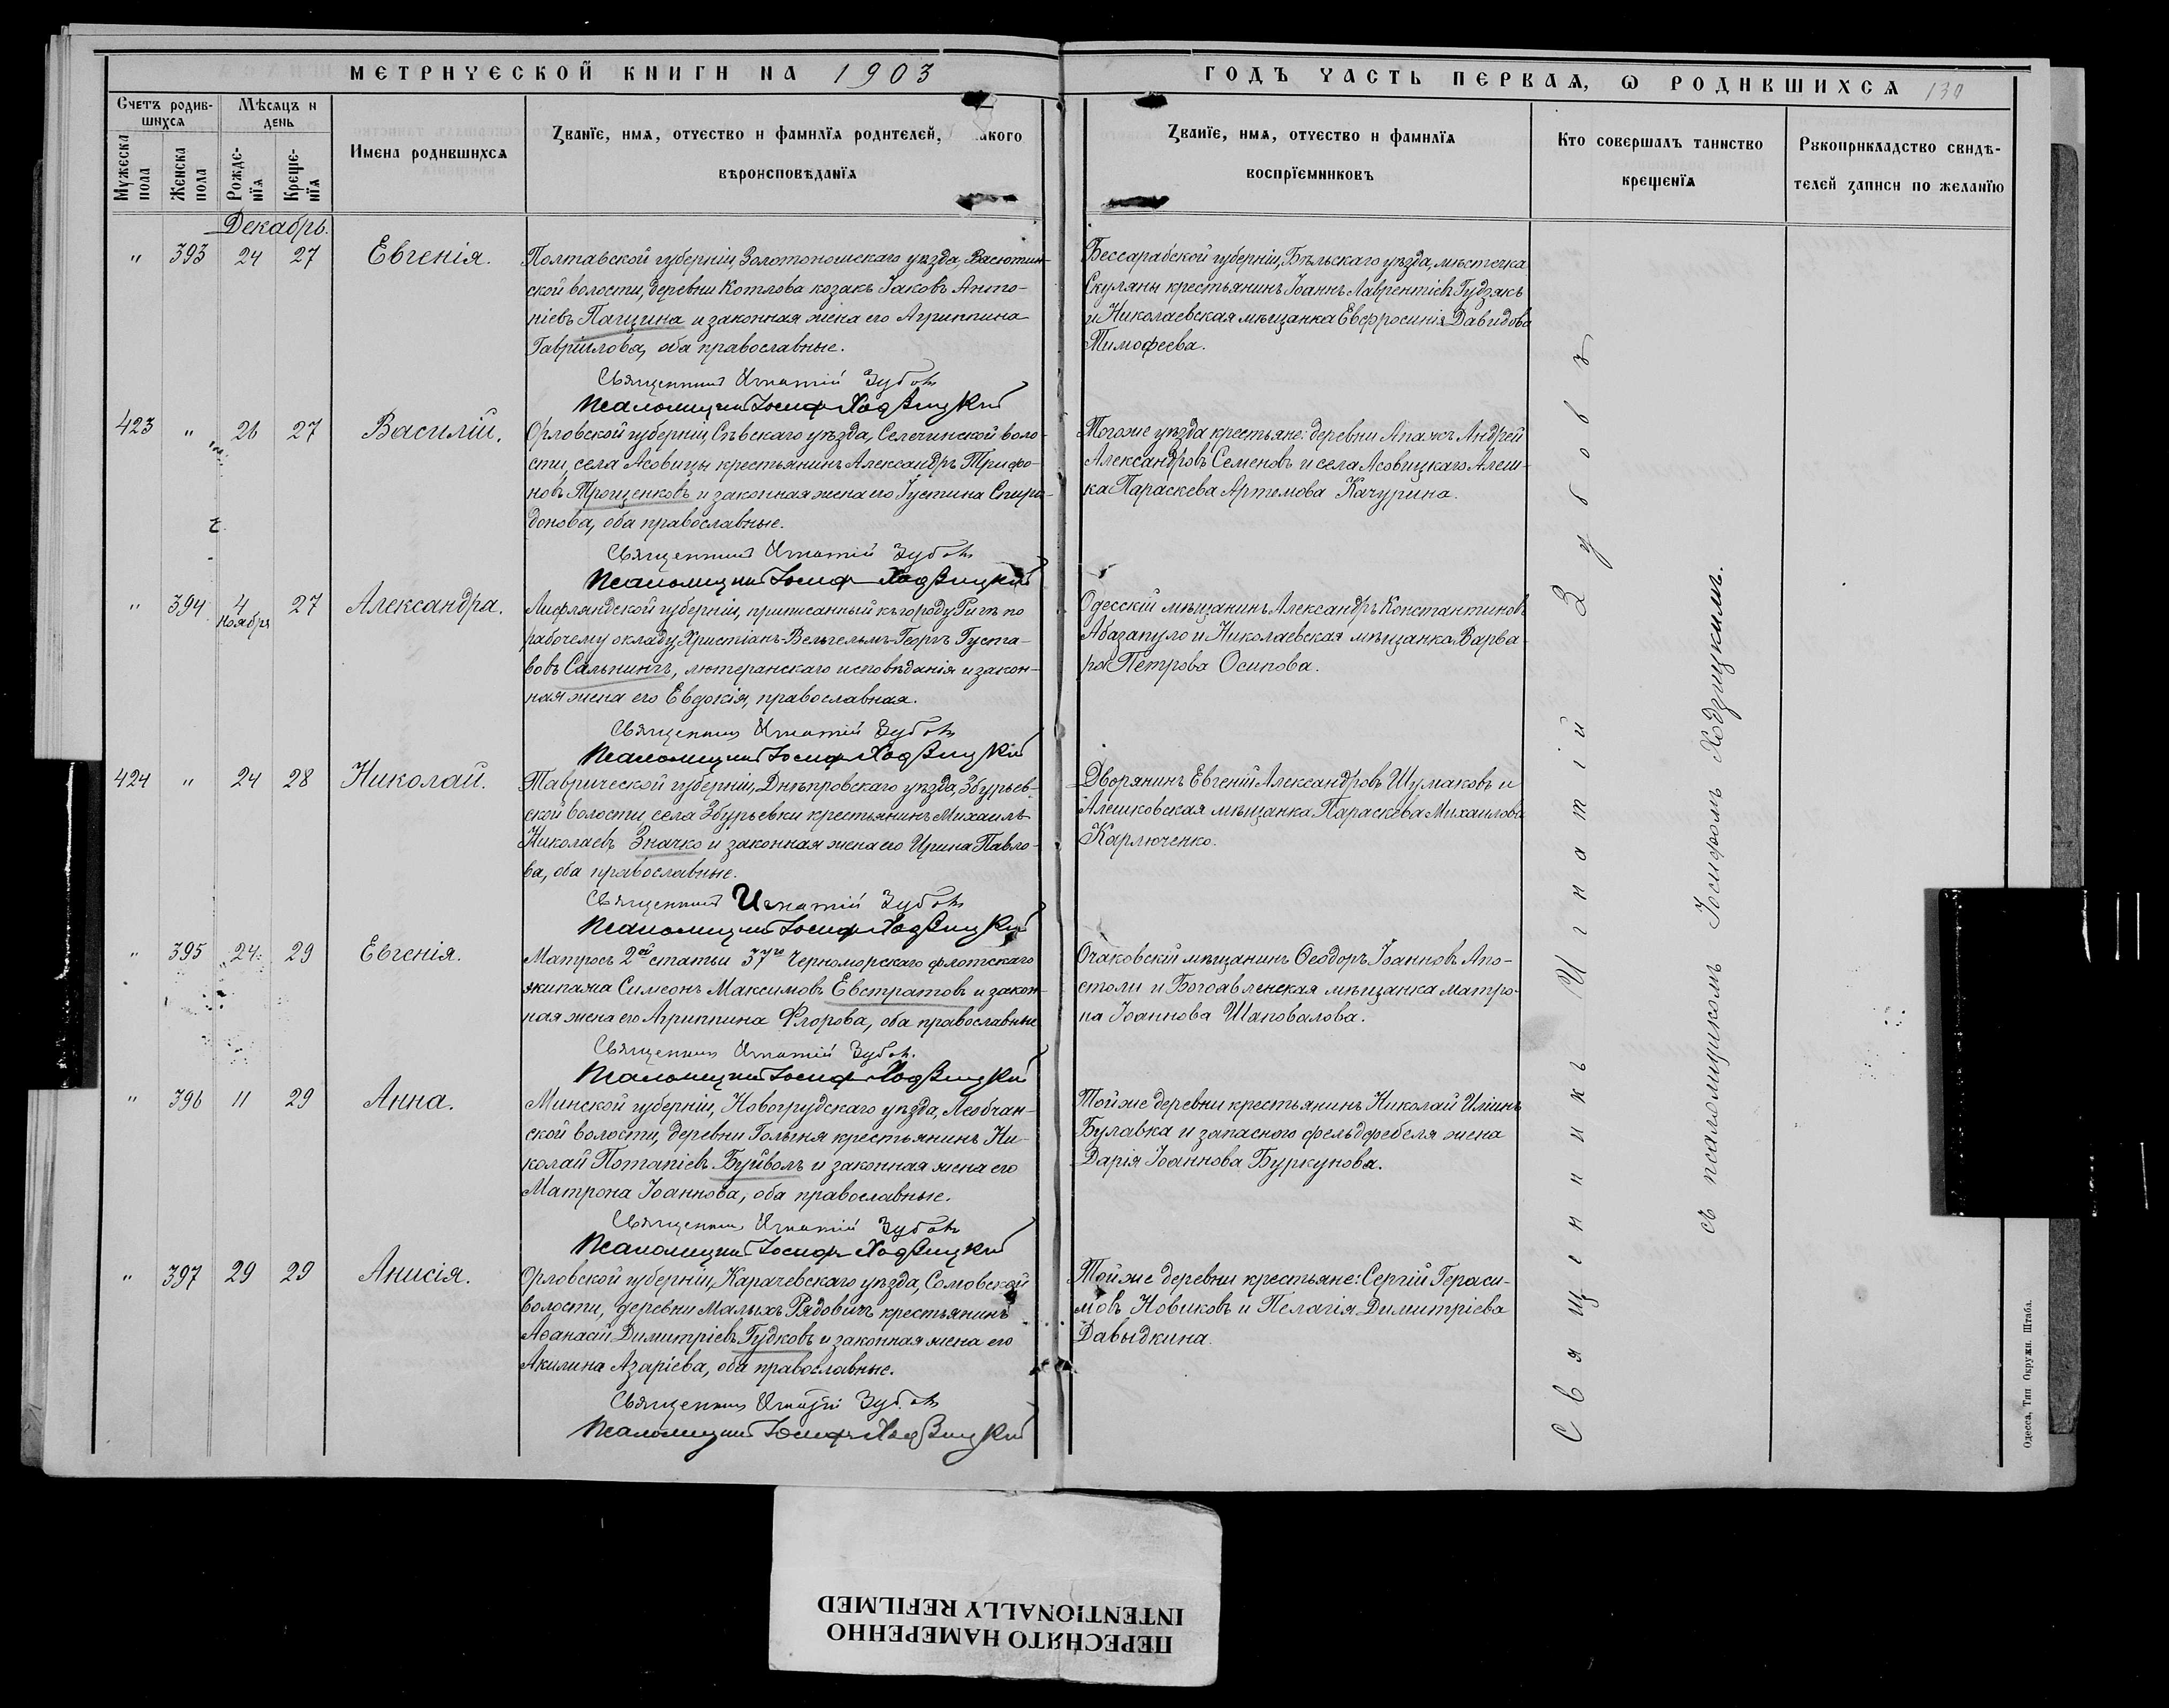 МЕТРИЧЕСКОЙ КНИГИ НА 1903
ГОДЪ ЧАСТЬ ПЕРВАЯ, Ѡ РОДИВШИХСЯ 130
Счетъ родив-
шихся
Мѣсяцъ и
день
Мужеска
пола
Женска
пола
Рожде-
нїя
Креще-
нїя
Имена родившихся
Званїе, имя, отчество и фамилїя родителей, какого
вѣроисповѣданїя
Званїе, имя, отчество и фамилїя
воспрїемниковъ
Кто совершалъ таинство
крещенїя
Рукоприкладство свидѣ-
телей записи по желанїю
Декабрь.
" 393 24 27 Евгенія.
Полтавской губерніи, Золотоношскаго уѣзда, Васютин-
ской волости, деревни Котлова козакъ Іаковъ Анто-
ніевъ Пащина и законная жена его Агриппина
Гавріилова, оба православные.
Священникъ Игнатій Зубовъ
Псаломщикъ Іосифъ Ходзицкій
Бессарабской губерніи, Бѣльскаго уѣзда, мѣстечка
Скуляны крестьянинъ Іоаннъ Лаврентіевъ Гудзякъ
и Николаевская мѣщанка Евфросинія Давидова
Тимофеева.
423 " 26 27 Василій.
Орловской губерніи, Сѣвскаго уѣзда, Селечинской воло-
сти, села Асовицы крестьянинъ Александръ Трифо-
новъ Трощенковъ и законная жена его Іустина Спири-
донова, оба православные.
Священникъ Игнатій Зубовъ
Псаломщикъ Іосифъ Ходзицкій
Тогоже уѣзда крестьяне: деревни Апажъ Андрей
Александровъ Семеновъ и села Асовицкаго Алеш-
ка Параскева Артемова Качурина.
" 394 4 27 Александра.
ноября
Лифляндской губерніи, приписанный къ городу Ригѣ по
рабочему окладу, Христіанъ-Вельгельмъ-Георгъ Густа-
вовъ Сальнингъ, лютеранскаго исповѣданія и закон-
ная жена его Евдокія, православная.
Священникъ Игнатій Зубовъ
Псаломщикъ Іосифъ Ходзицкій
Одесскій мѣщанинъ Александръ Константиновъ
Абазапуло и Николаевская мѣщанка Варва-
ра Петрова Осипова.
424 " 24 28 Николай.
Таврической губерніи, Днѣпровскаго уѣзда, Збурьев-
ской волости, села Збурьевки крестьянинъ Михаилъ
Николаевъ Значко и законная жена его Ирина Павло-
ва, оба православные.
Священникъ Игнатій Зубовъ
Псаломщикъ Іосифъ Ходзицкій
Дворянинъ Евгеній Александровъ Шумаковъ и
Алешковская мѣщанка Параскева Михаилова
Карлюченко.
" 395 24 29 Евгенія.
Матросъ 2ой статьи 37го Черноморскаго флотскаго
экипажа Симеонъ Максимовъ Евстратовъ и закон-
ная жена его Агриппина Флорова, оба православные
Священникъ Игнатій Зубовъ.
Псаломщикъ Іосифъ Ходзицкій
Очаковскій мѣщанинъ Ѳеодоръ Іоанновъ Апо-
столи и Богоявленская мѣщанка Матро-
на Іоаннова Шаповалова.
" 396 11 29 Анна.
Минской губерніи, Новогрудскаго уѣзда, Любчан-
ской волости, деревни Голыня крестьянинъ Ни-
колай Потапіевъ Буйволъ и законная жена его
Матрона Іоаннова, оба православные.
Священникъ Игнатій Зубовъ
Псаломщикъ Іосифъ Ходзицкій
Тойже деревни крестьянинъ Николай Иліинъ
Булавка и запаснаго фельдфебеля жена
Дарія Іоаннова Буркунова.
" 397 29 29 Анисія.
Орловской губерніи, Карачевскаго уѣзда, Сомовской
волости, деревни Малыхъ Рядовичъ крестьянинъ
Аѳанасій Димитріевъ Гудковъ и законная жена его
Акилина Азаріева, оба православные.
Священникъ Игнатій Зубовъ
Псаломщикъ Іосифъ Ходзицкій
Тойже деревни крестьяне: Сергій Гераси-
мовъ Новиковъ и Пелагія Димитріева
Давыдкина.
Священникъ Игнатій Зубовъ
съ псаломщикомъ Іосифомъ Ходзицкимъ.
Одесса, Тип Окружн. Штаба.
ПЕРЕСНЯТО НАМЕРЕННО
INTENTIONALLY REFILMED